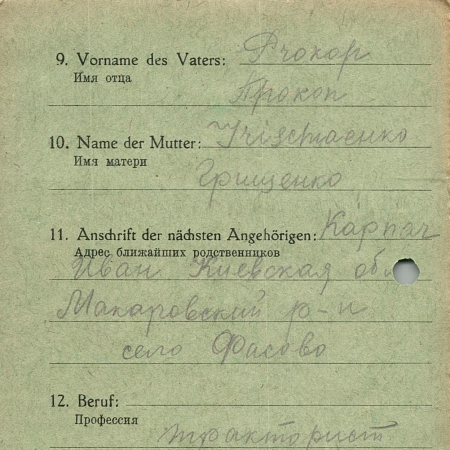 9. Vorname des Vaters: Prokop
Имя отца
Прокоп
10. Name der Mutter: Irischtschenko
Имя матери
Грищенко
11. Anschrift der nächsten Angehörigen: Карпач
Адрес ближайших родственников
Иван Киевская обл
Макаровский р-н
село Фасово
12. Beruf:
Профессия
тракторист